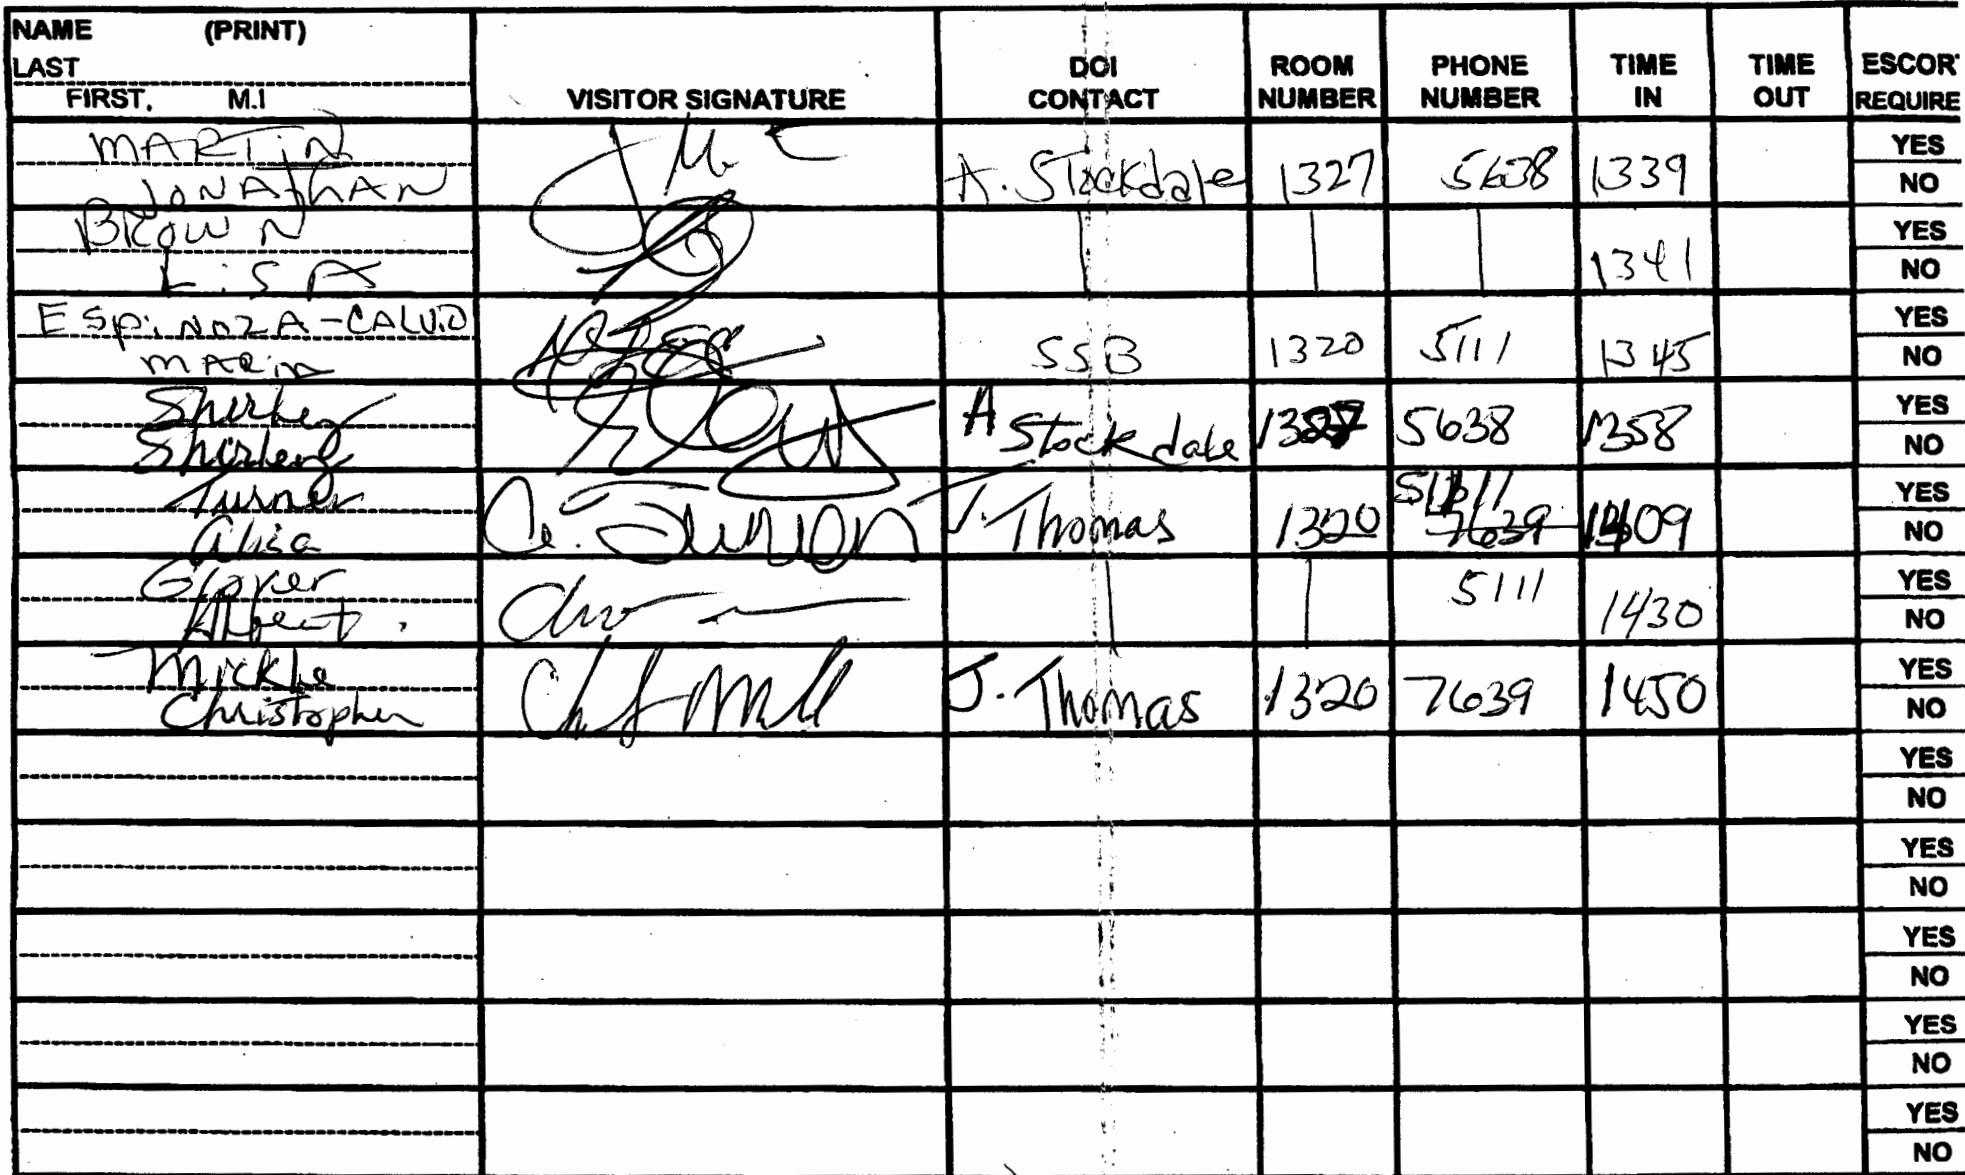 NAME (PRINT)
LAST
FIRST, M.I
VISITOR SIGNATURE
DOI
CONTACT
ROOM
NUMBER
PHONE
NUMBER
TIME
IN
TIME
OUT
ESCOR
REQUIRE
MARTIN
JONATHAN
A. Stockdale 1327 5638 1339
YES
NO
BROWN
LISA
1341
YES
NO
ESPINOZA-CALVIO
MARIA
SSB 1320 5111 1345
YES
NO
Shirley
Shirley
A Stockdale 1327 5638 1358
YES
NO
Turner
Alisa
J. Thomas 1320 5111 7639 1409
YES
NO
Glover
Albert
5111 1430
YES
NO
Mickle
Christopher
J. Thomas 1320 7639 1450
YES
NO
YES
NO
YES
NO
YES
NO
YES
NO
YES
NO